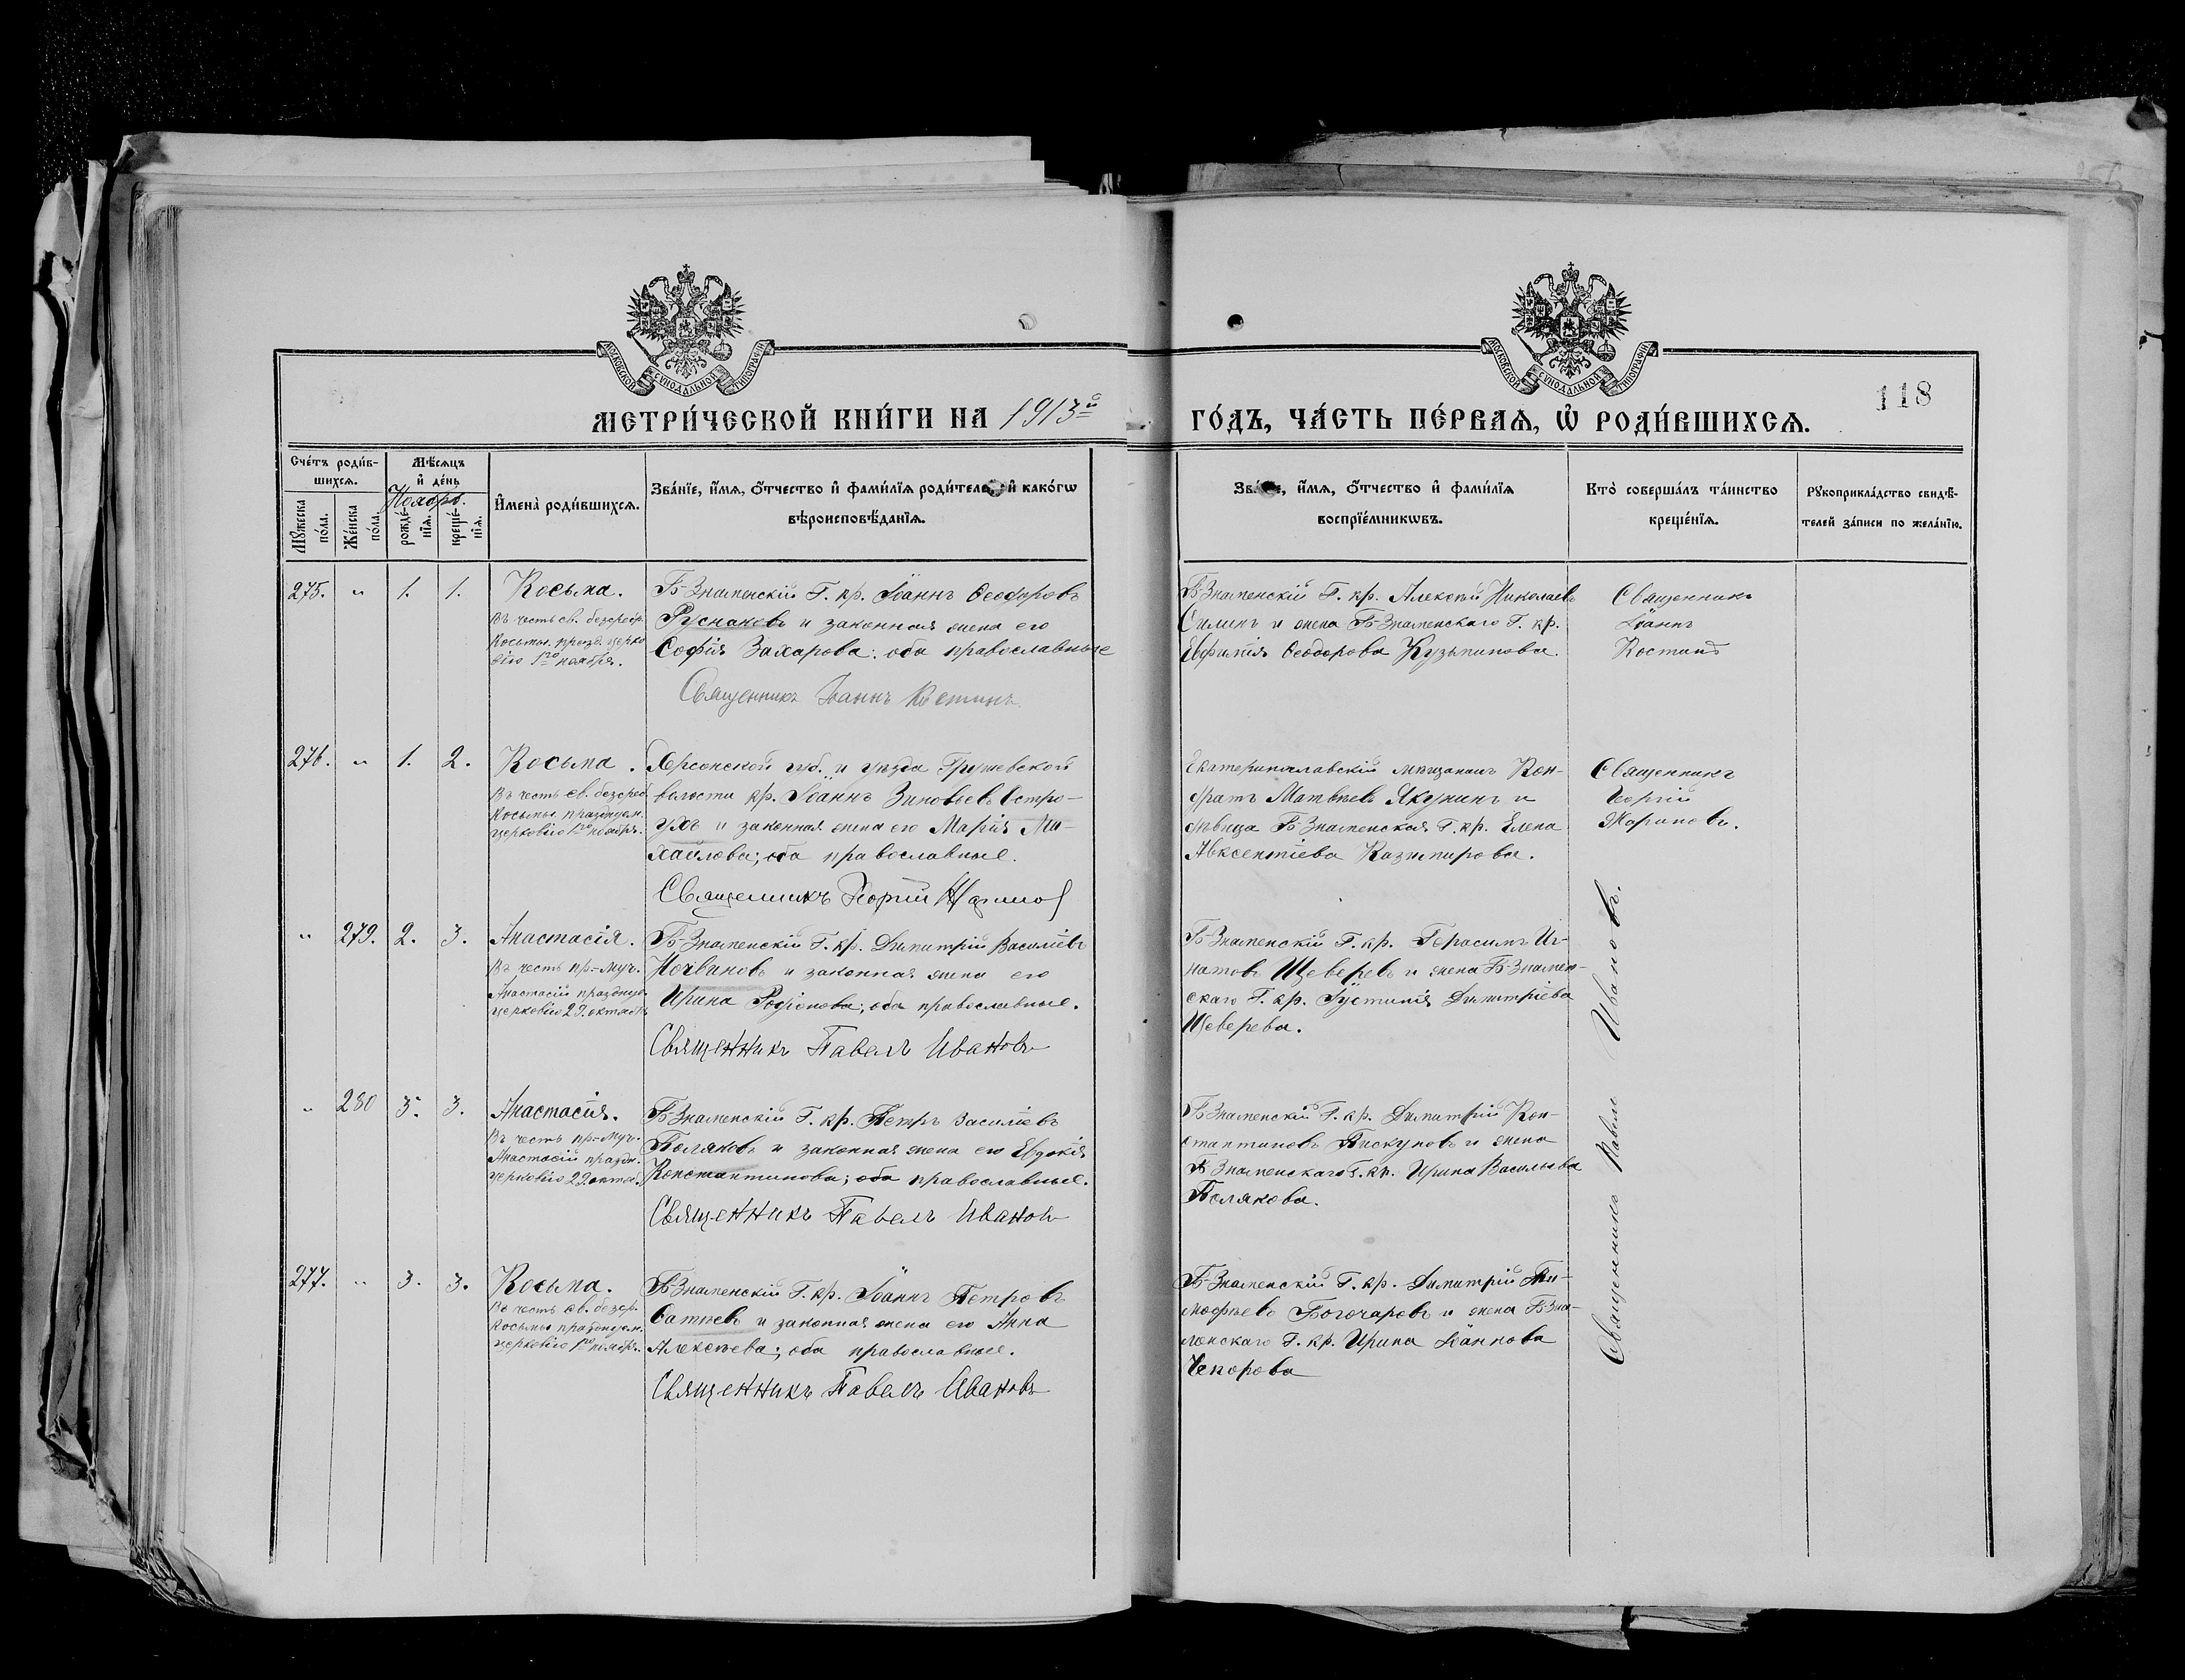 МОСКОВСКОЙ СѴНОДАЛЬНОЙ ТИПОГРАФІИ
МОСКОВСКОЙ СѴНОДАЛЬНОЙ ТИПОГРАФІИ
118
МЕТРИ́ЧЕСКОЙ КНИ́ГИ НА 1913й ГО́ДЪ, ЧА́СТЬ ПЕ́РВАѦ, Ѡ҆ РОДИ́ВШИХСѦ.
Сче́тъ роди́в-
шихсѧ.
Мѣ́сѧцъ
и҆ де́нь
Ноябрь.
Мꙋжеска по́ла.
Же́нска по́ла.
рожде́-нїѧ.
креще́-нїѧ.
И҆мена̀ роди́вшихсѧ.
Зва́нїе, и҆́мѧ, ѻ҆́тчество и҆ фами́лїѧ роди́телей, и҆ како́гѡ
вѣроисповѣ́данїѧ.
Зва́нїе, и҆́мѧ, ѻ҆́тчество и҆ фами́лїѧ
воспрїе́мникѡвъ.
Кто̀ соверша́лъ та́инство
креще́нїѧ.
Рꙋкоприкла́дство свидѣ́-
телей за́писи по жела́нїю.
275. " 1. 1. Косьма.
Въ честь св. безсребр.
Косьмы. празд. церко
вію 1го ноября.
Б-Знаменскій Г. кр. Іоаннъ Ѳеодоровъ
Руснаковъ и законная жена его
Софія Захарова; оба православные
Священникъ Іоаннъ Костинъ
Б-Знаменскій Г. кр. Алексѣй Николаевъ
Силинъ и жена Б-Знаменскаго Г. кр.
Евфимія Ѳеодорова Кузьминова.
Священникъ
Іоаннъ
Костинъ
276. " 1. 2. Косьма.
Въ честь св. безсреб.
Косьмы празднуем.
церковію 1го ноября.
Херсонской губ. и уѣзда Грушевской
волости кр. Іоаннъ Зиновьевъ Остро-
ухъ и законная жена его Марія Ми-
хайлова; оба православные.
Священникъ Георгій
Екатеринославскій мѣщанинъ Кон-
дратъ Матвѣевъ Якунинъ и
дѣвица Б-Знаменская Г. кр. Елена
Авксентіева Казимирова.
Священникъ
Георгій
" 279. 2. 3. Анастасія.
Въ честь пр-муч.
Анастасіи празднуе.
церковію 29. октября
Б-Знаменскій Г. кр. Димитрій Василіевъ
Ночвиновъ и законная жена его
Ирина Родіонова; оба православные.
Священникъ Павелъ Ивановъ
Б-Знаменскій Г. кр. Герасимъ Иг-
натовъ Щеверевъ и жена Б-Знамен-
скаго Г. кр. Іустинія Димитріева
Щеверева.
" 280 3. 3. Анастасія.
Въ честь пр-муч.
Анастасіи праздн.
церковію 29. октяб.
Б-Знаменскій Г. кр. Петръ Василіевъ
Поляковъ и законная жена его Евдокія
Константинова; оба православные.
Священникъ Павелъ Ивановъ
Б-Знаменскій Г. кр. Димитрій Кон-
стантиновъ Пискуновъ и жена
Б-Знаменскаго Г. кр. Ирина Васильева
Полякова.
277. " 3. 3. Косьма.
Въ честь св. безср.
Косьмы празднуем.
церковію 1го ноября.
Б-Знаменскій Г. кр. Іоаннъ Петровъ
Сатѣевъ и законная жена его Анна
Алексѣева; оба православные.
Священникъ Павелъ Ивановъ
Б-Знаменскій Г. кр. Димитрій Ти-
мофѣевъ Богочаровъ и жена Б-Зна-
менскаго Г. кр. Ирина Іоаннова
Чепорова
Священникъ Павелъ Ивановъ.